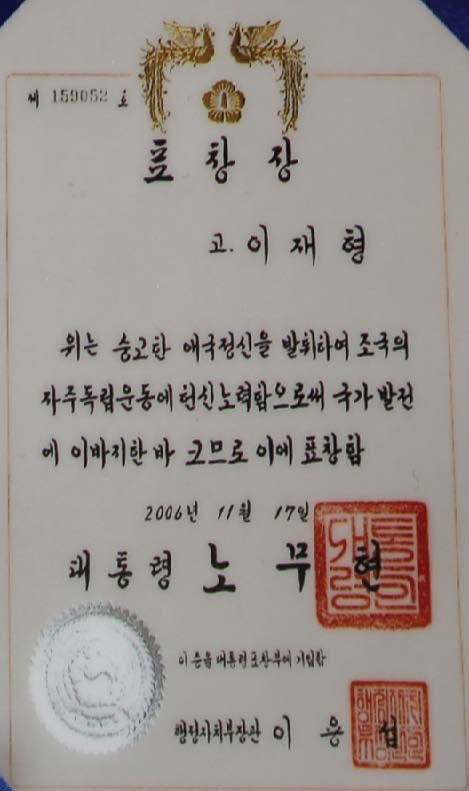 제 159052 호
표창장
고. 이재형
위는 숭고한 애국정신을 발휘하여 조국의
자주독립운동에 헌신노력함으로써 국가 발전
에 이바지한 바 크므로 이에 표창함
2006년 11월 17일
대통령 노무현
이 증을 대통령표창부에 기입함
행정자치부장관 이용섭